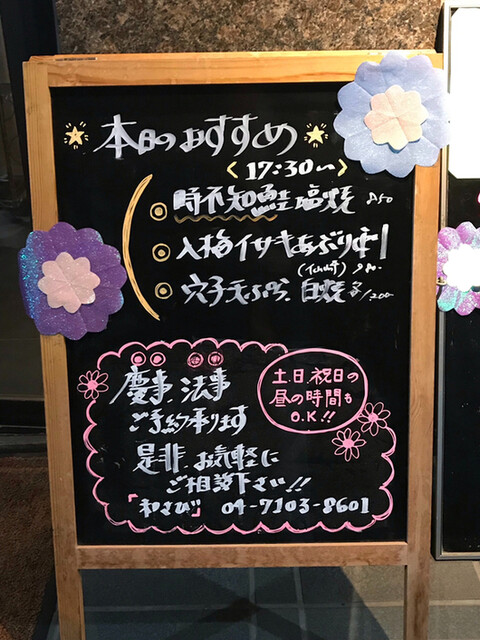 本日のおすすめ
<17:30〜>
時不知鮭塩焼 850
入梅イサキあぶり刺
穴子天ぷら、白焼 各1200-
慶事、法事
ご予約承ります
土、日、祝日の
昼の時間も
O.K.!!
是非、お気軽に
ご相談下さい!!
「わさび」 04-7103-8601